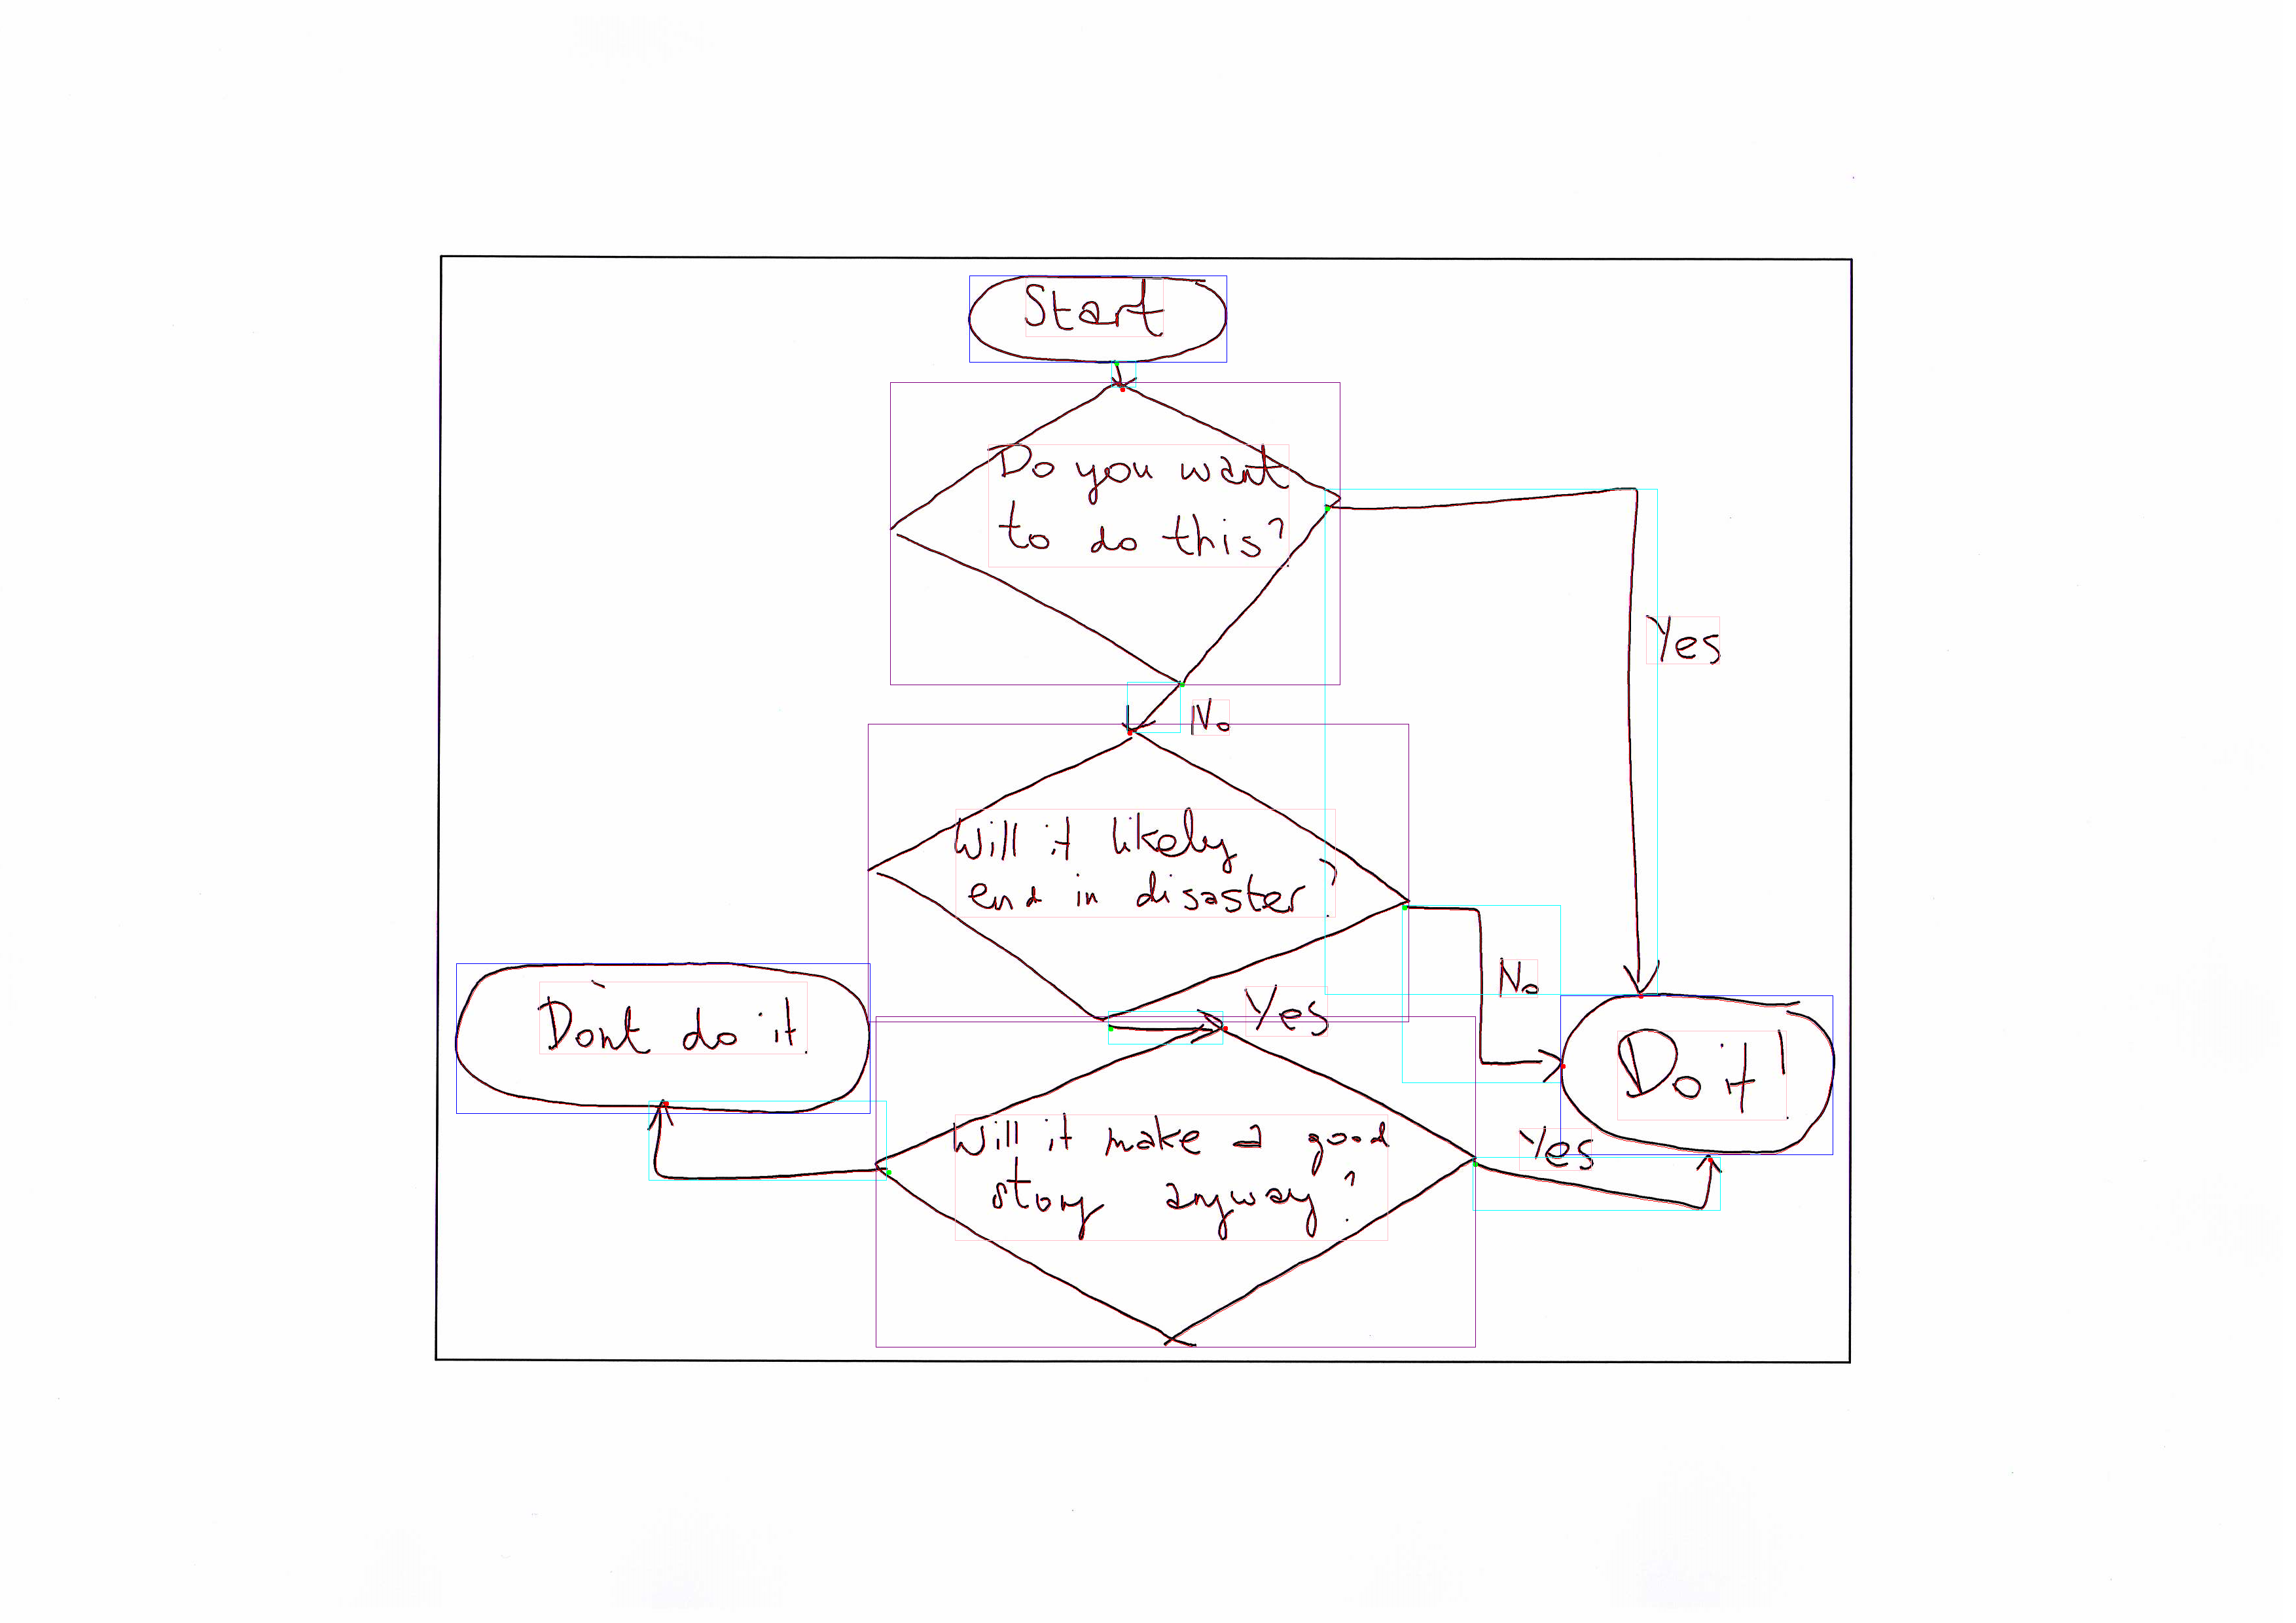 Start
Do you want
to do this?
Yes
No
Will it likely
end in disaster?
No
Yes
Don't do it.
Do it!
Will it make a good
story anyway?
Yes